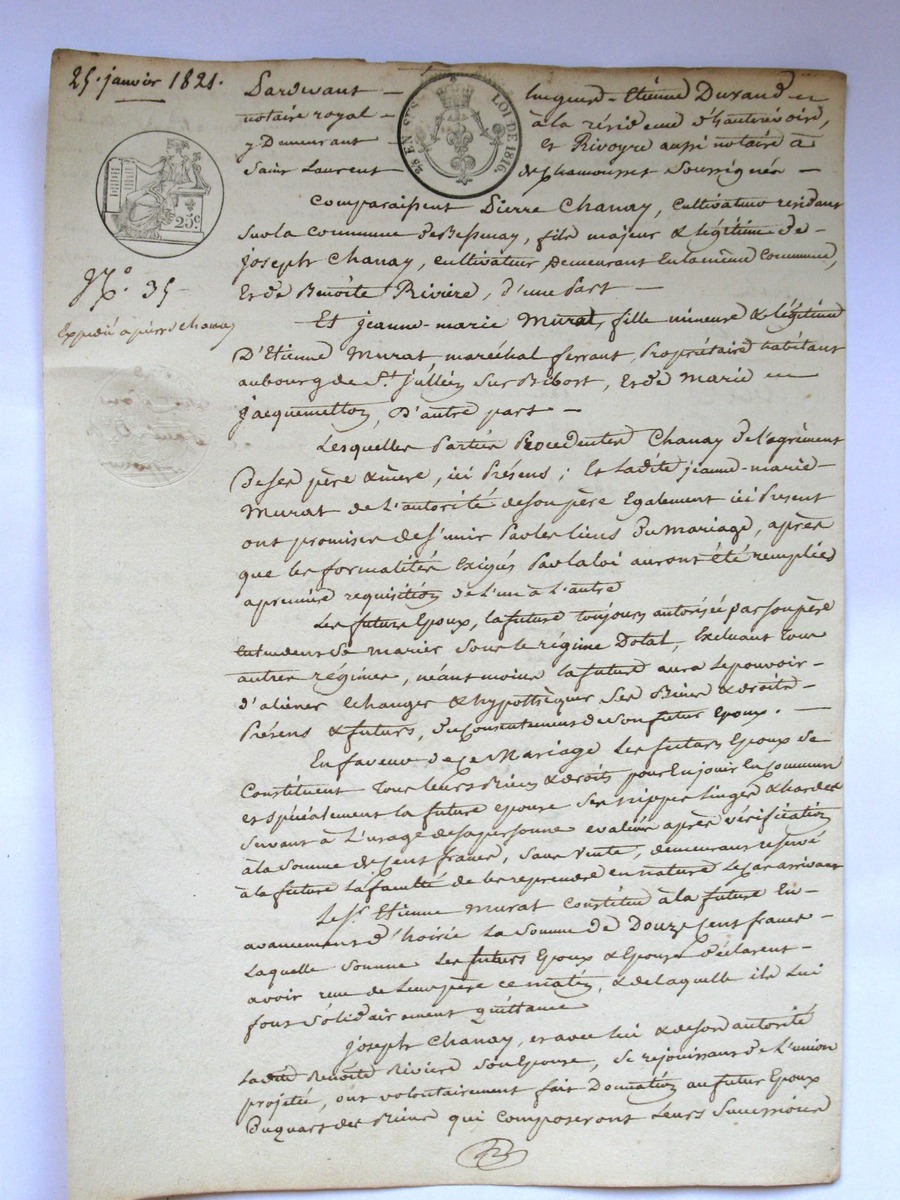 25. janvier 1821.
Pardevant — hugues-Etienne Durand et
notaire royal — à la résidence d'hauterivoire,
y Demeurant — et Rivoyre aussi notaire à
Saint Laurent de Chamousset Soussignés —
28 EN SUS
LOI DE 1816
25c
N.º 35
Expédié a pierre chanay
Comparaissent Pierre Chanay, cultivateur résidant
Sur la commune de Bessenay, fils majeur & légitime de
joseph Chanay, cultivateur, Demeurant En la même Commune,
Et de Benoîte Rivière, d'une Part —
Et jeanne-marie Murat, fille mineure & légitime
D'Etienne Murat maréchal ferrant, Propriétaire habitant
au bourg de St. jullien Sur Bibost, Et de Marie
jacquemetton, D'autre part —
Lesquelles Parties Procedentes Chanay De l'agrément
De ses père & mère, ici Présens; Et Ladite jeanne-marie
Murat de L'autorité de son père Egalement ici Present
ont promis de S'unir Par les liens Du mariage, après
que les formalités Exigés Par la loi auront été remplies
a premiere requisition de L'un à L'autre
Les futurs Epoux, la future toujours autorisée par son père
Entendent Se marier Sous le régime Dotal, Excluant tous
autres régimes, néanmoins la future aura Le pouvoir —
d'aliéner Echanger & hypothèquer Ses Biens & droits —
Présens & futurs, du Consentement de Son futur Epoux. —
En faveur de Ce Mariage Les futurs Epoux Se
Constituent Tous leurs Biens & droits pour En jouir En Commun
et spécialement la future epouse Ses nippes linges & hardes
Servant à L'usage de sa personne evalués après vérification
à la Somme de Cent francs, Sans vente, demeurans reservé
à la future La faculté de les reprendre en nature Le Cas arrivant
Le Sr. Etienne Murat Constitue à la future En —
avancement d'hoirie La Somme de Douze Cent francs —
Laquelle Somme Les futurs Epoux & Epouse déclarent —
avoir reçue de Leur père ce matin, & de laquelle ils Lui
font Solidairement Quittance
joseph Chanay, et avec lui & de son autorité
Ladite Benoîte Rivière Son Epouse, Se rejouissans de L'union
projetée, ont volontairement fait Donnation au futur Epoux
Du quart des Biens qui Composeront Leurs Successions